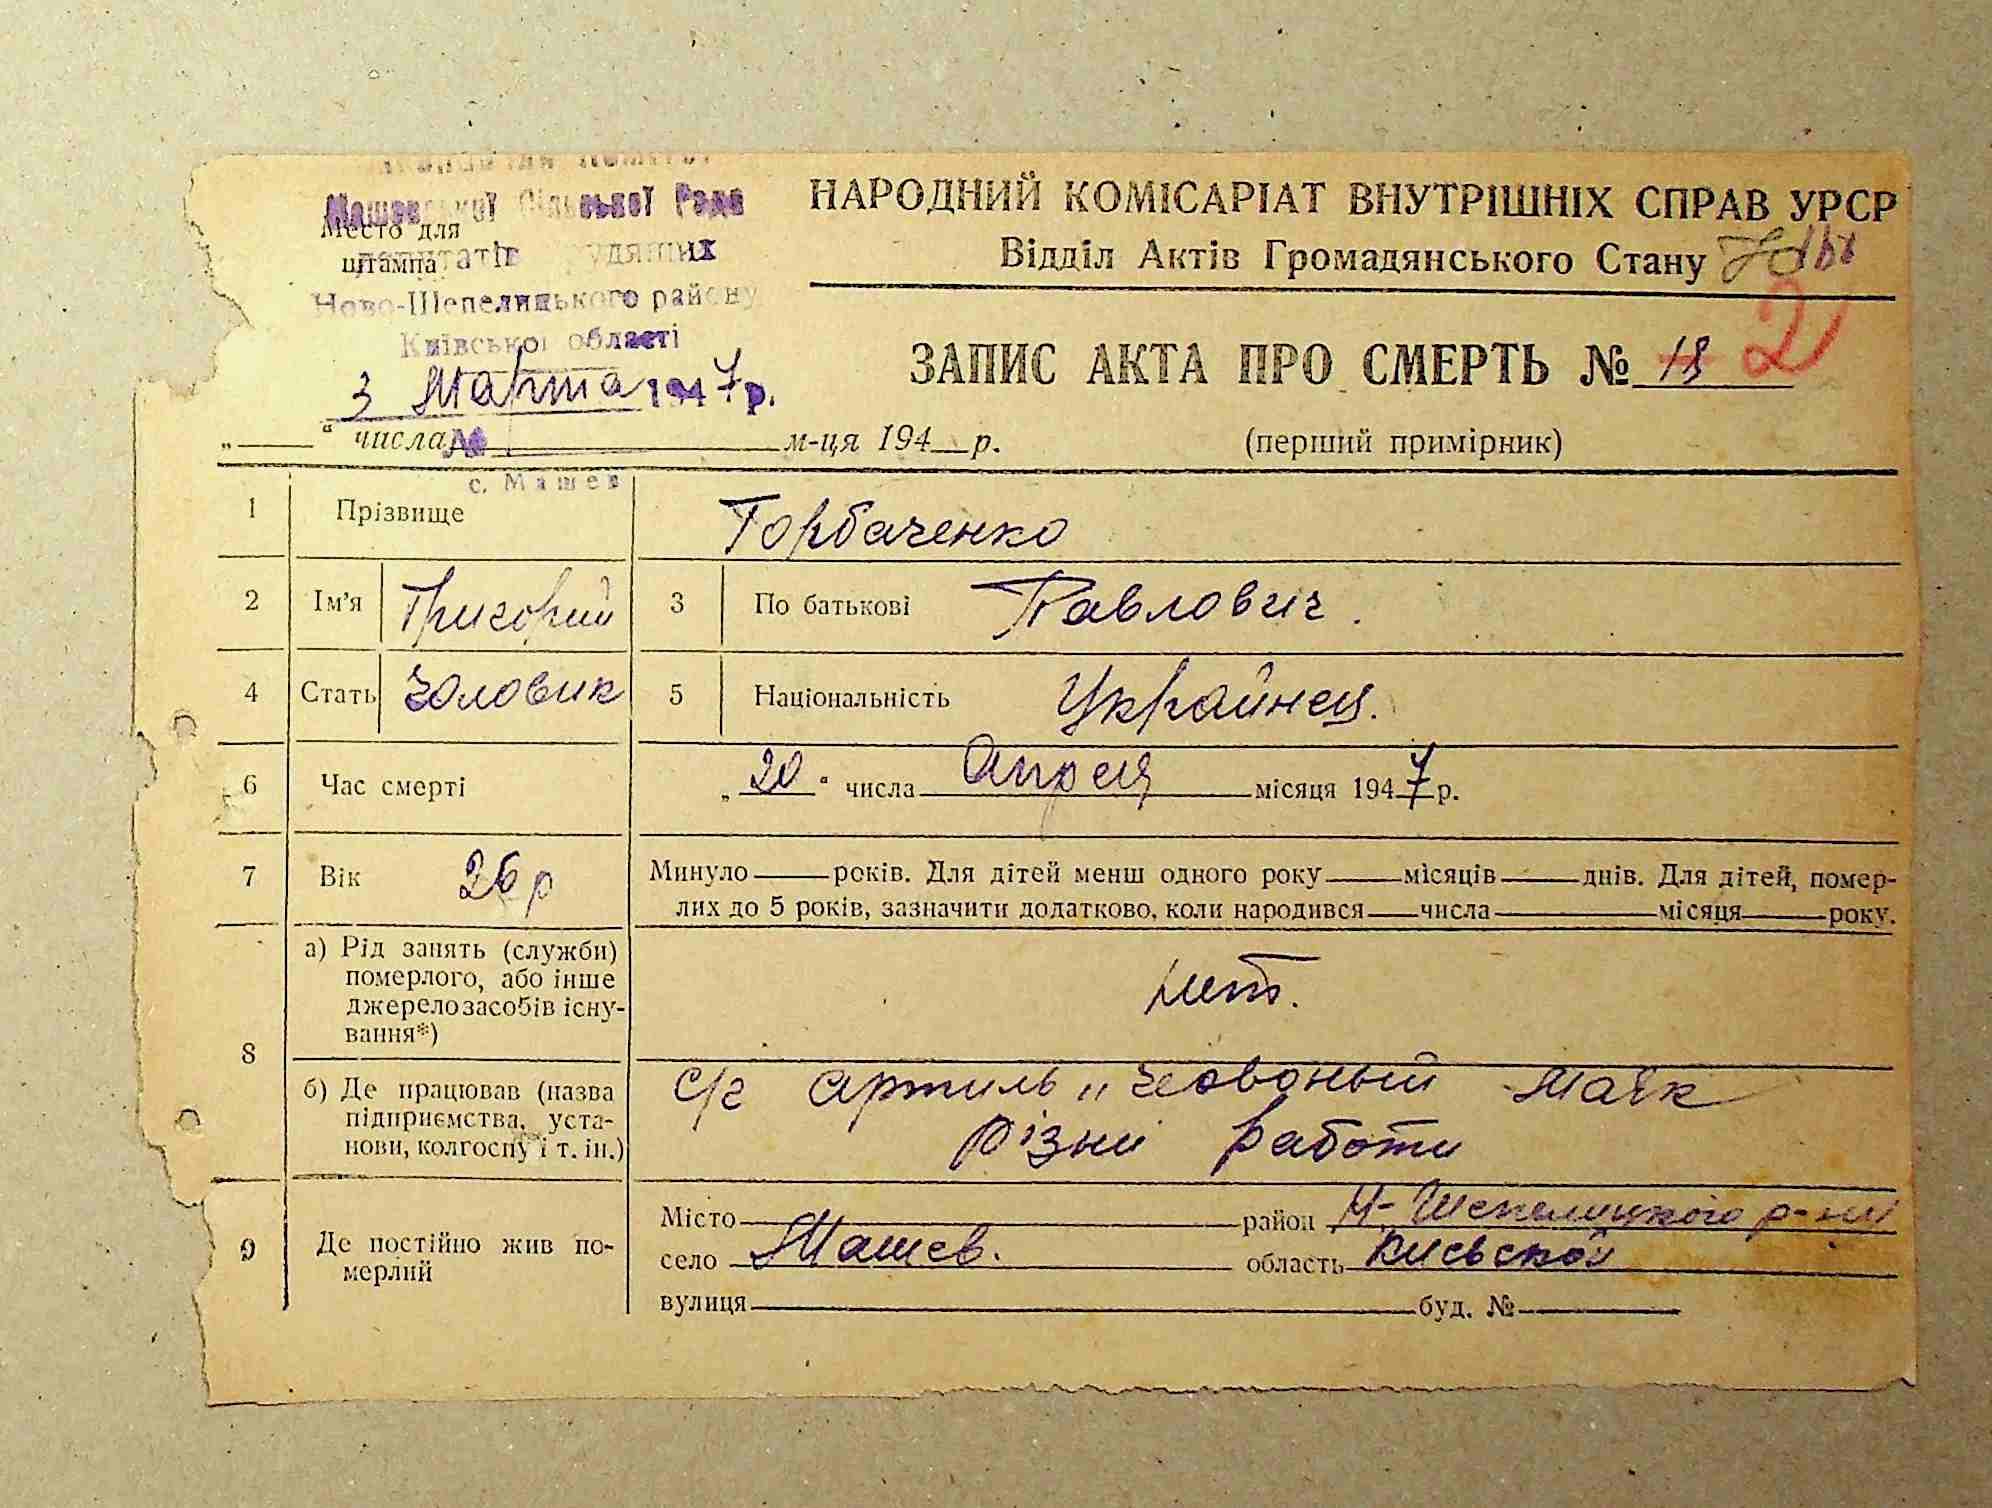 Машевської Сільської Ради
Место для
штампа
депутатів трудящих
Ново-Шепелицького району
Київської області
3 Марта 1947 р.
НАРОДНИЙ КОМІСАРІАТ ВНУТРІШНІХ СПРАВ УРСР
Відділ Актів Громадянського Стану
ЗАПИС АКТА ПРО СМЕРТЬ № 18 2
„ “ числа м-ця 194 р. (перший примірник)
с. Машев
1 Прізвище Горбаченко
2 Ім'я Григорий 3 По батькові Павлович.
4 Стать Чоловик 5 Національність Украйнец.
6 Час смерті „20“ числа Апреля місяця 1947 р.
7 Вік 26 р Минуло років. Для дітей менш одного року місяців днів. Для дітей, помер-
лих до 5 років, зазначити додатково, коли народився числа місяця року.
8 а) Рід занять (служби)
померлого, або інше
джерело засобів існу-
вання*)
нет.
б) Де працював (назва
підприємства, уста-
нови, колгоспу і т. ін.)
с/г артиль „Червоный Маяк
Різни работи
9 Де постійно жив по-
мерлий
Місто район Н-Шепелицкого р-ни
село Машев. область Киевской
вулиця буд. №